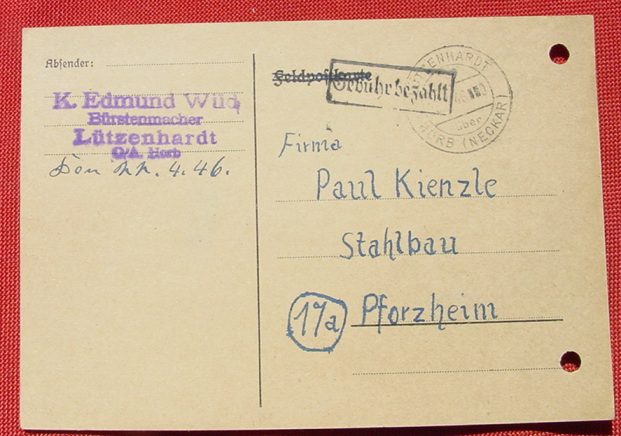 Absender:
K. Edmund Wüd
Bürstenmacher
Lützenhardt
O/A. Horb
Den 4. 46.
Feldpostkarte
Gebühr bezahlt
über
HORB (NECKAR)
Firma
Paul Kienzle
Stahlbau
17a Pforzheim